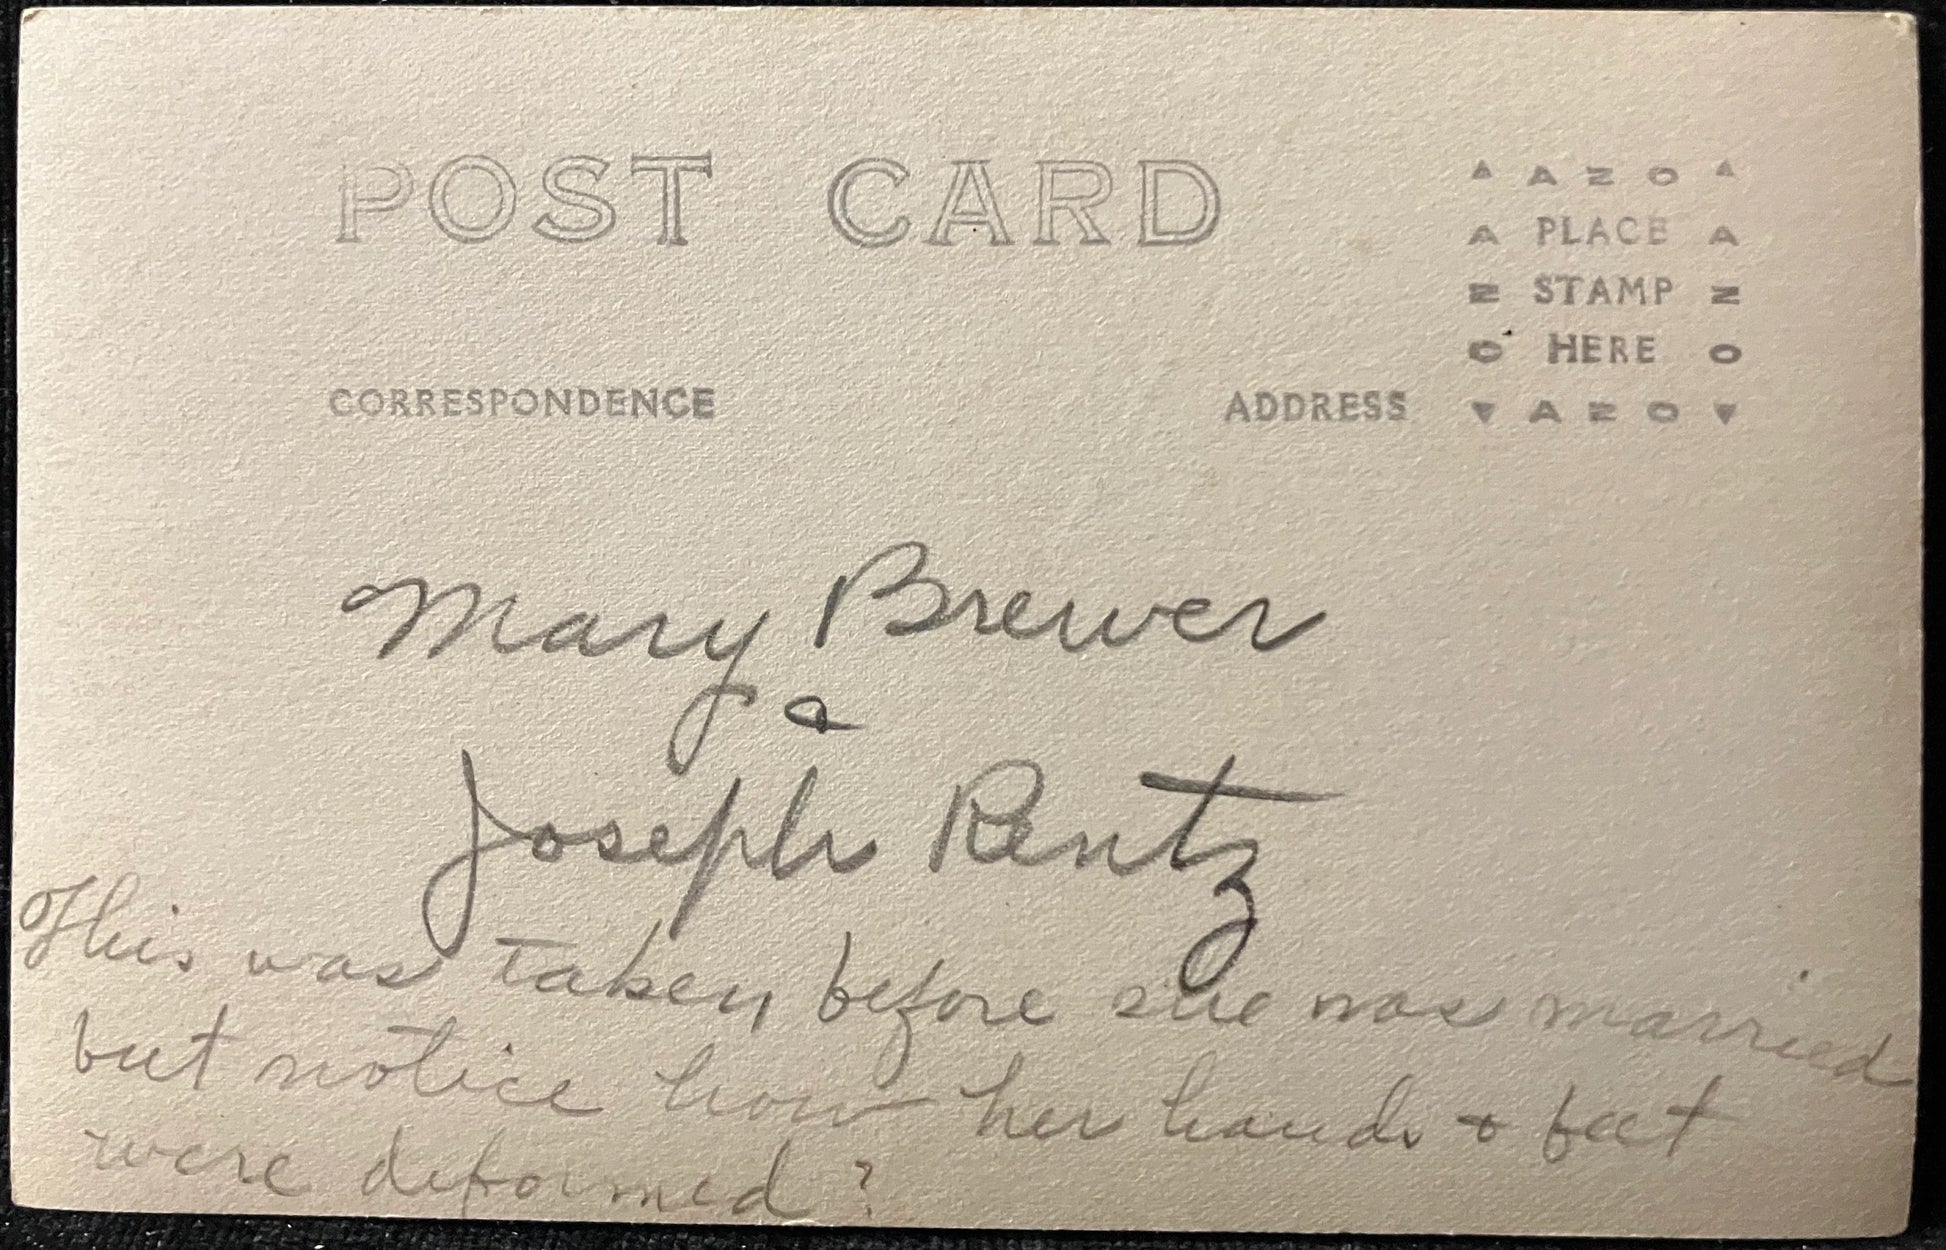 POST CARD
AZO
A PLACE A
Z STAMP Z
O HERE O
CORRESPONDENCE ADDRESS AZO
Mary Brewer
&
Joseph Rentz
This was taken before she was married
but notice how her hands & feet
were deformed?